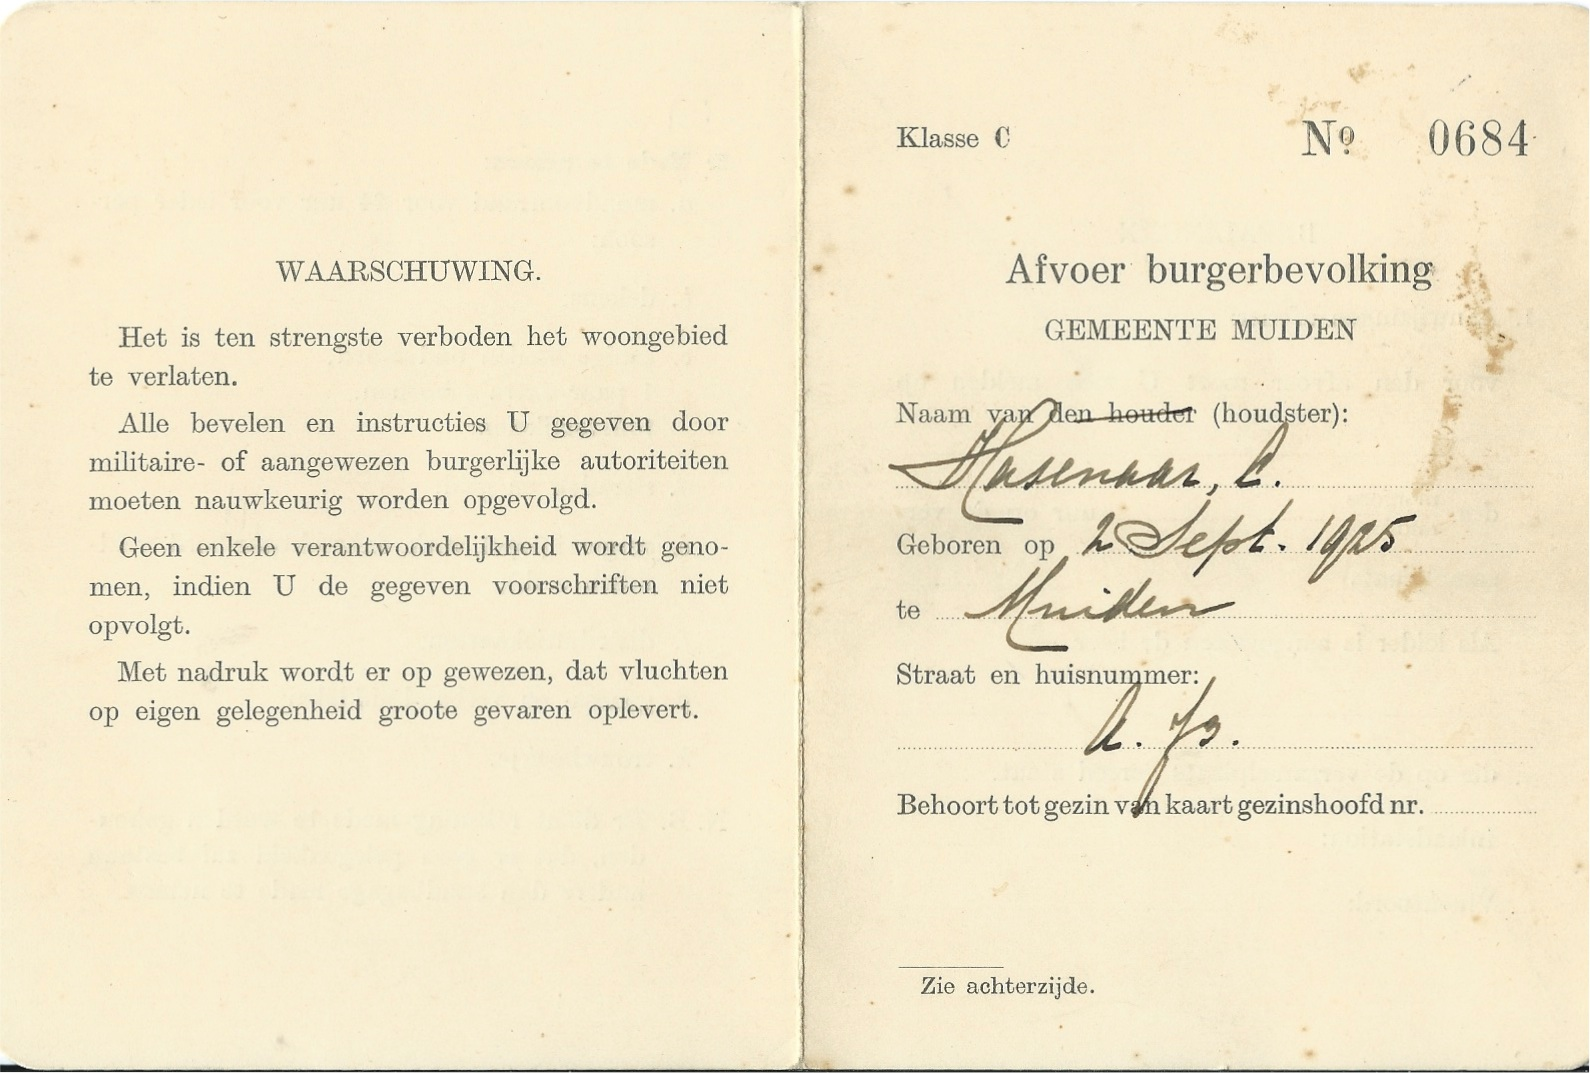 WAARSCHUWING.
Het is ten strengste verboden het woongebied
te verlaten.
Alle bevelen en instructies U gegeven door
militaire- of aangewezen burgerlijke autoriteiten
moeten nauwkeurig worden opgevolgd.
Geen enkele verantwoordelijkheid wordt geno-
men, indien U de gegeven voorschriften niet
opvolgt.
Met nadruk wordt er op gewezen, dat vluchten
op eigen gelegenheid groote gevaren oplevert.
Klasse C
No 0684
Afvoer burgerbevolking
GEMEENTE MUIDEN
Naam van den houder (houdster):
Hasenaar, C.
Geboren op 2 Sept. 1925
te Muiden
Straat en huisnummer:
Behoort tot gezin van kaart gezinshoofd nr.
Zie achterzijde.